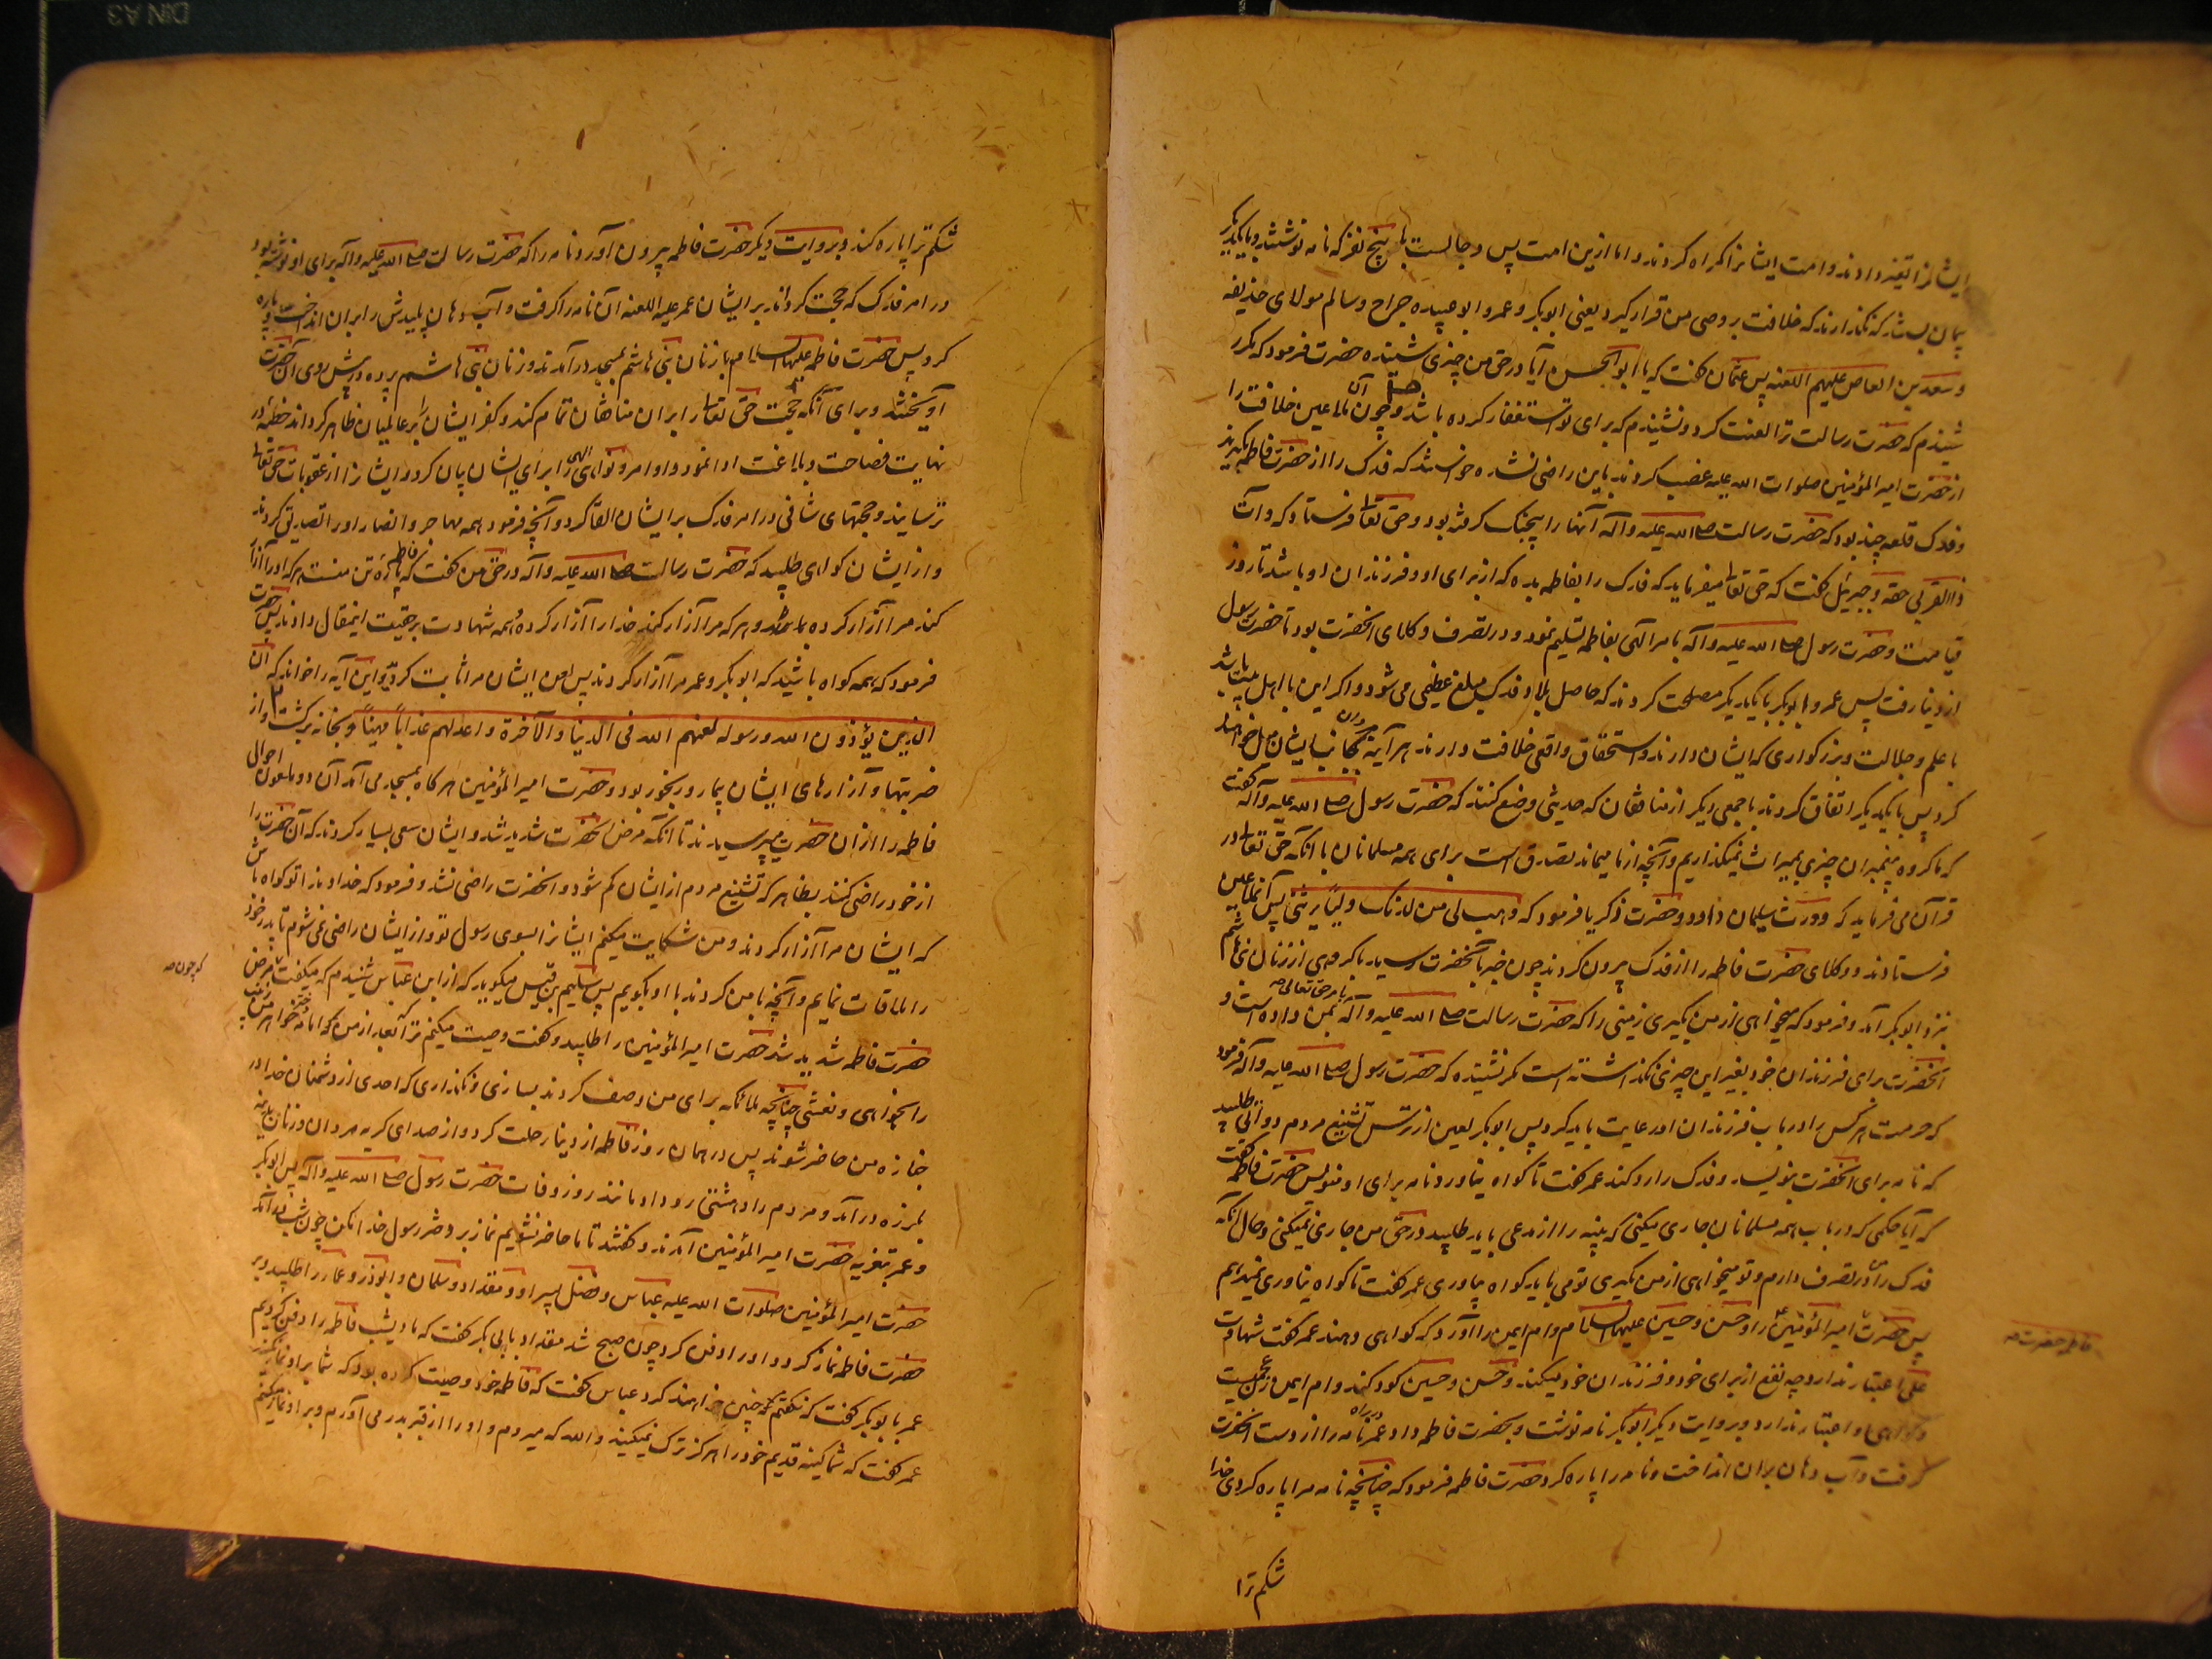 ایشانرا تغیر دادند و امت ایشانرا گمراه کردند و اما ازین امت پس دجالست با پنج نفر که نامه نوشتند و با یکدیگر
پیمان بستند که نگذارند که خلافت بر وصی من قرار گیرد یعنی ابوبکر و عمر و ابو عبیده جراح و سالم مولای حذیفه
و سعد بن العاص علیهم اللعنه پس عثمان گفت که یا ابو الحسن آیا در حق من چیزی شنیده حضرت فرمود که مکرر
شنیدم که حضرت رسالت ترا لعنت کرد و نشنیدم که برای تو استغفار کرده باشد و چون آن ملاعین خلافت را
از حضرت امیر المؤمنین صلوات الله علیه غصب کردند باین راضی نشده خواستند که فدک را از حضرت فاطمه بگیرند
و فدک قلعه چند بود که حضرت رسالت صلی الله علیه و آله آنها را بجنگ گرفته بود و حق تعالی فرستاد که و آت
ذا القربی حقه و جبرئیل گفت که حق تعالی میفرماید که فدک را بفاطمه بده که از برای او و فرزندان او باشد تا روز
قیامت و حضرت رسول صلی الله علیه و آله بامر الهی بفاطمه تسلیم نمود و در تصرف وکلای آنحضرت بود تا حضرت رسول
از دنیا رفت پس عمر و ابوبکر با یکدیگر مصلحت کردند که حاصل بلاد فدک مبلغ عظیمی می شود و اگر این با اهل بیت باشد
با علم و جلالت و بزرگواری که ایشان دارند و استحقاق واقعی خلافت دارند هر آینه مردان بجانب ایشان میل خواهند
کرد پس با یکدیگر اتفاق کردند با جمعی دیگر از منافقان که حدیثی وضع کنند که حضرت رسول صلی الله علیه و آله گفت
که ما گروه پیغمبران چیزی بمیراث نمیگذاریم و آنچه از ما میماند تصدق است برای همه مسلمانان با آنکه حق تعالی در
قرآن می فرماید که و ورث سلیمان داود و حضرت زکریا فرمود که و هب لی من لدنک ولیاً یرثنی پس آن ملاعین
فرستادند و وکلای حضرت فاطمه را از فدک بیرون کردند چون خبر بآنحضرت رسید با گروهی از زنان بنی هاشم
بنزد ابوبکر آمد و فرمود که میخواهی از من بگیری زمینی را که حضرت رسالت صلی الله علیه و آله بامر حق تعالی بمن داده است و
آنحضرت برای فرزندان خود بغیر این چیزی نگذاشته است مگر نشنیده که حضرت رسول صلی الله علیه و آله فرمود
که حرمت هر کس را در باب فرزندان او رعایت باید کرد پس ابوبکر لعین از ترس تشنیع مردم دواتی طلبید
که نامه برای آنحضرت بنویسد و فدک را رد کند عمر گفت تا گواه نیاورد نامه برای او منویس حضرت فاطمه گفت
که آیا حکمی که در باب همه مسلمانان جاری میکنی که بینه را از مدعی باید طلبید در حق من جاری نمیکنی و حال آنکه
فدک را من در تصرف دارم و تو میخواهی از من بگیری تو می باید گواه بیاوری عمر گفت تا گواه نیاوری نمیدهیم
پس حضرت امیر المؤمنین را و حسن و حسین علیهما السلام و ام ایمن را آورد که گواهی دهند عمر گفت شهادت
علی اعتبار ندارد چه نفع از برای خود و فرزندان خود میکند و حسن و حسین کودکند و ام ایمن زن عجمیست
و گواهی او اعتبار ندارد و بروایت دیگر ابوبکر نامه نوشت و بحضرت فاطمه داد عمر در راه نامه را از دست آنحضرت
گرفت و آب دهان بران انداخت و نامه را پاره کرد حضرت فاطمه فرمود که چنانچه نامه مرا پاره کردی خدا
شکم ترا
فاطمه حضرت صه
شکم ترا پاره کند و بروایت دیگر حضرت فاطمه بیرون آورد نامه را که حضرت رسالت صلی الله علیه و آله برای او نوشته بود
در امر فدک که حجت گرداند بر ایشان عمر علیه اللعنه آن نامه را گرفت و آب دهان پلیدش را بران انداخت و پاره
کرد پس حضرت فاطمه علیها السلام با زنان بنی هاشم بمسجد درآمدند و زنان بنی هاشم پرده در پیش روی آن حضرت
آویختند و برای آنکه حجت حق تعالی را بران منافقان تمام کند و کفر ایشان را بر عالمیان ظاهر گرداند خطبه در
نهایت فصاحت و بلاغت ادا نمود و اوامر و نواهی الهی را برای ایشان بیان کرد و ایشانرا از عقوبات حق تعالی
ترسانید و حجتهای شافی در امر فدک بر ایشان القا کرد و آنچه فرمود همه مهاجر و انصار او را تصدیق کردند
و از ایشان گواهی طلبید که حضرت رسالت صلی الله علیه و آله در حق من گفت که فاطمه پاره تن منست هر که او را آزار
کند مرا آزار کرده باشد و هر که مرا آزار کند خدا را آزار کرده همه شهادت بر حقیت اینمقال دادند پس حضرت
فرمود که همه گواه باشید که ابوبکر و عمر مرا آزار کردند پس لعن ایشان مرا ثابت گردید و این آیه را خواند که ان
الذین یؤذون الله و رسوله لعنهم الله فی الدنیا و الآخرة و اعد لهم عذاباً مهیناً و بخانه برگشت و از
ضربتها و آزارهای ایشان بیمار و رنجور بود و حضرت امیر المؤمنین هر گاه بمسجد می آمد آن دو ملعون احوالی
فاطمه را از ان حضرت میپرسیدند تا آنکه مرض آنحضرت شدید شد و ایشان سعی بسیار کردند که آن حضرت را
از خود راضی کنند بظاهر که تشنیع مردم از ایشان کم شود و آنحضرت راضی نشد و فرمود که خداوندا تو گواه باش
که ایشان مرا آزار کردند و من شکایت میکنم ایشانرا بسوی رسول تو و از ایشان راضی نمی شوم تا پدر خود
را ملاقات نمایم و آنچه با من کردند با او بگویم پس سلیم بن قیس میگوید که از ابن عباس شنیدم که میگفت مرض
حضرت فاطمه شدید شد حضرت امیر المؤمنین را طلبید و گفت وصیت میکنم ترا که بعد از من که امامه دختر خواهر من زینب
را بخواهی و نعشی چنانچه ملائکه برای من وصف کردند بسازی و نگذاری که احدی از دشمنان خدا در
جنازه من حاضر شوند پس در همان روز فاطمه از دنیا رحلت کرد و از صدای گریه مردان و زنان مدینه
بلرزه درآمد و مردم را دهشتی رو داد مانند روز وفات حضرت رسول صلی الله علیه و آله پس ابوبکر
و عمر بتعزیه حضرت امیر المؤمنین آمدند و گفتند تا ما حاضر نشویم نماز بر دختر رسول خدا مکن چون شب درآمد
حضرت امیر المؤمنین صلوات الله علیه عباس و فضل پسر او و مقداد و سلمان و ابوذر و عمار را طلبید و بر
حضرت فاطمه نماز کرد و او را دفن کرد چون صبح شد مقداد بابی بکر گفت که ما دیشب فاطمه را دفن کردیم
عمر با بوبکر گفت که نگفتم که چنین خواهند کرد عباس گفت که فاطمه خود وصیت کرده بود که شما بر او نماز نکنید
عمر گفت که شما کینه قدیم خود را هرگز ترک نمیکنید والله که میروم و او را از قبر بدر می آورم و بر او نماز میکنم
که چون صه